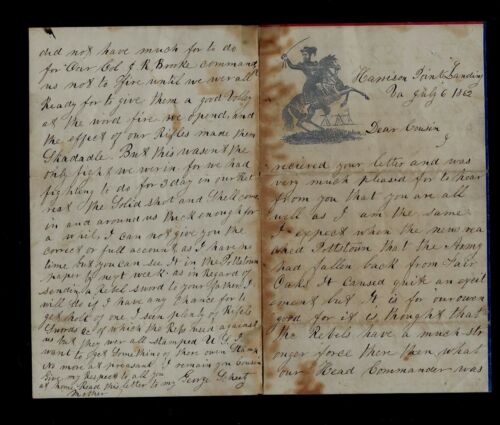 Harrison Point Landing
Va July 6 1862
Dear Cousin
I
recieved your letter and was
very much pleased for to hear
from you that you are all
well as I am the same
I expect when the news rea
ched Pottstown that the Army
had fallen back from Fair
Oaks It caused quite an exceit
ement but it is for our own
good for it is thought that
the Rebels have a much str
onger force then then what
our Head Commander was
did not have much for to do
for Our Col J. R. Brooke command
us not to fire until we wer all
Ready for to give them a good Volley
at the word fire we opend, and
the effect of our Rifles made them
Skadadle. But this wasent the
only fight we wer in for we had
fighting to do for 3 day in our Ret
reat the Solid shot and Shell come
in and around us thick enough for
a while I can not give you the
correct or full account as I have no
time but you can see it in the Pottstown
paper by next week. as in regard of
sending a Rebel sword to your father I
will do if I have any chance for to
get hold of one I seen plenty of Rebels
Swords &c of which the Rebs used against
us but they wer all stamped U.S. I
want to get something of there own Stamp
No more at preasant I remain you Cousin
Give my respect to all you
at home Read this letter to my George
Mother